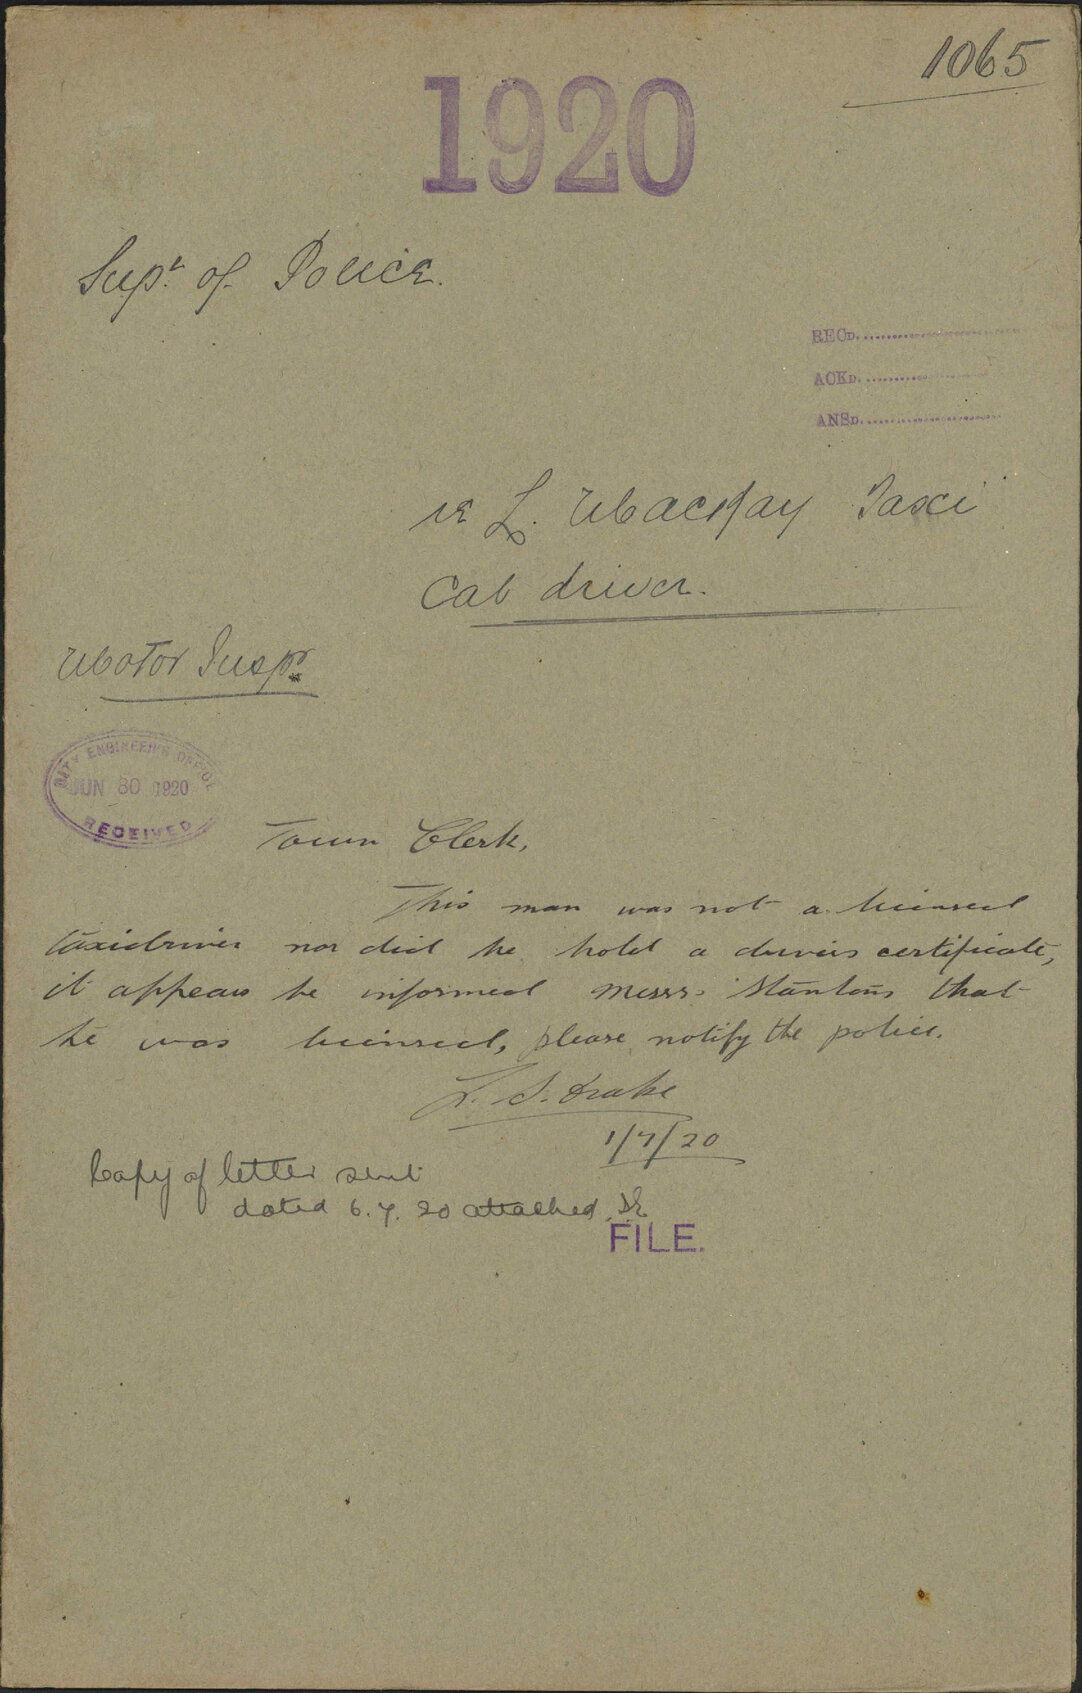 1065
1920
Supt. of Police.
RECD.
ACKD.
ANSD.
re L. MacKay Taxi
Cab driver.
Motor Inspr.
CITY ENGINEER'S OFFICE
JUN 30 1920
RECEIVED
Town Clerk,
This man was not a licensed
taxidriver nor did he hold a drivers certificate,
it appears he informed Messrs. Stantons that
he was licensed, please notify the police.
L. S. Drake
1/7/20
Copy of letter sent
dated 6.7.20 attached
FILE.